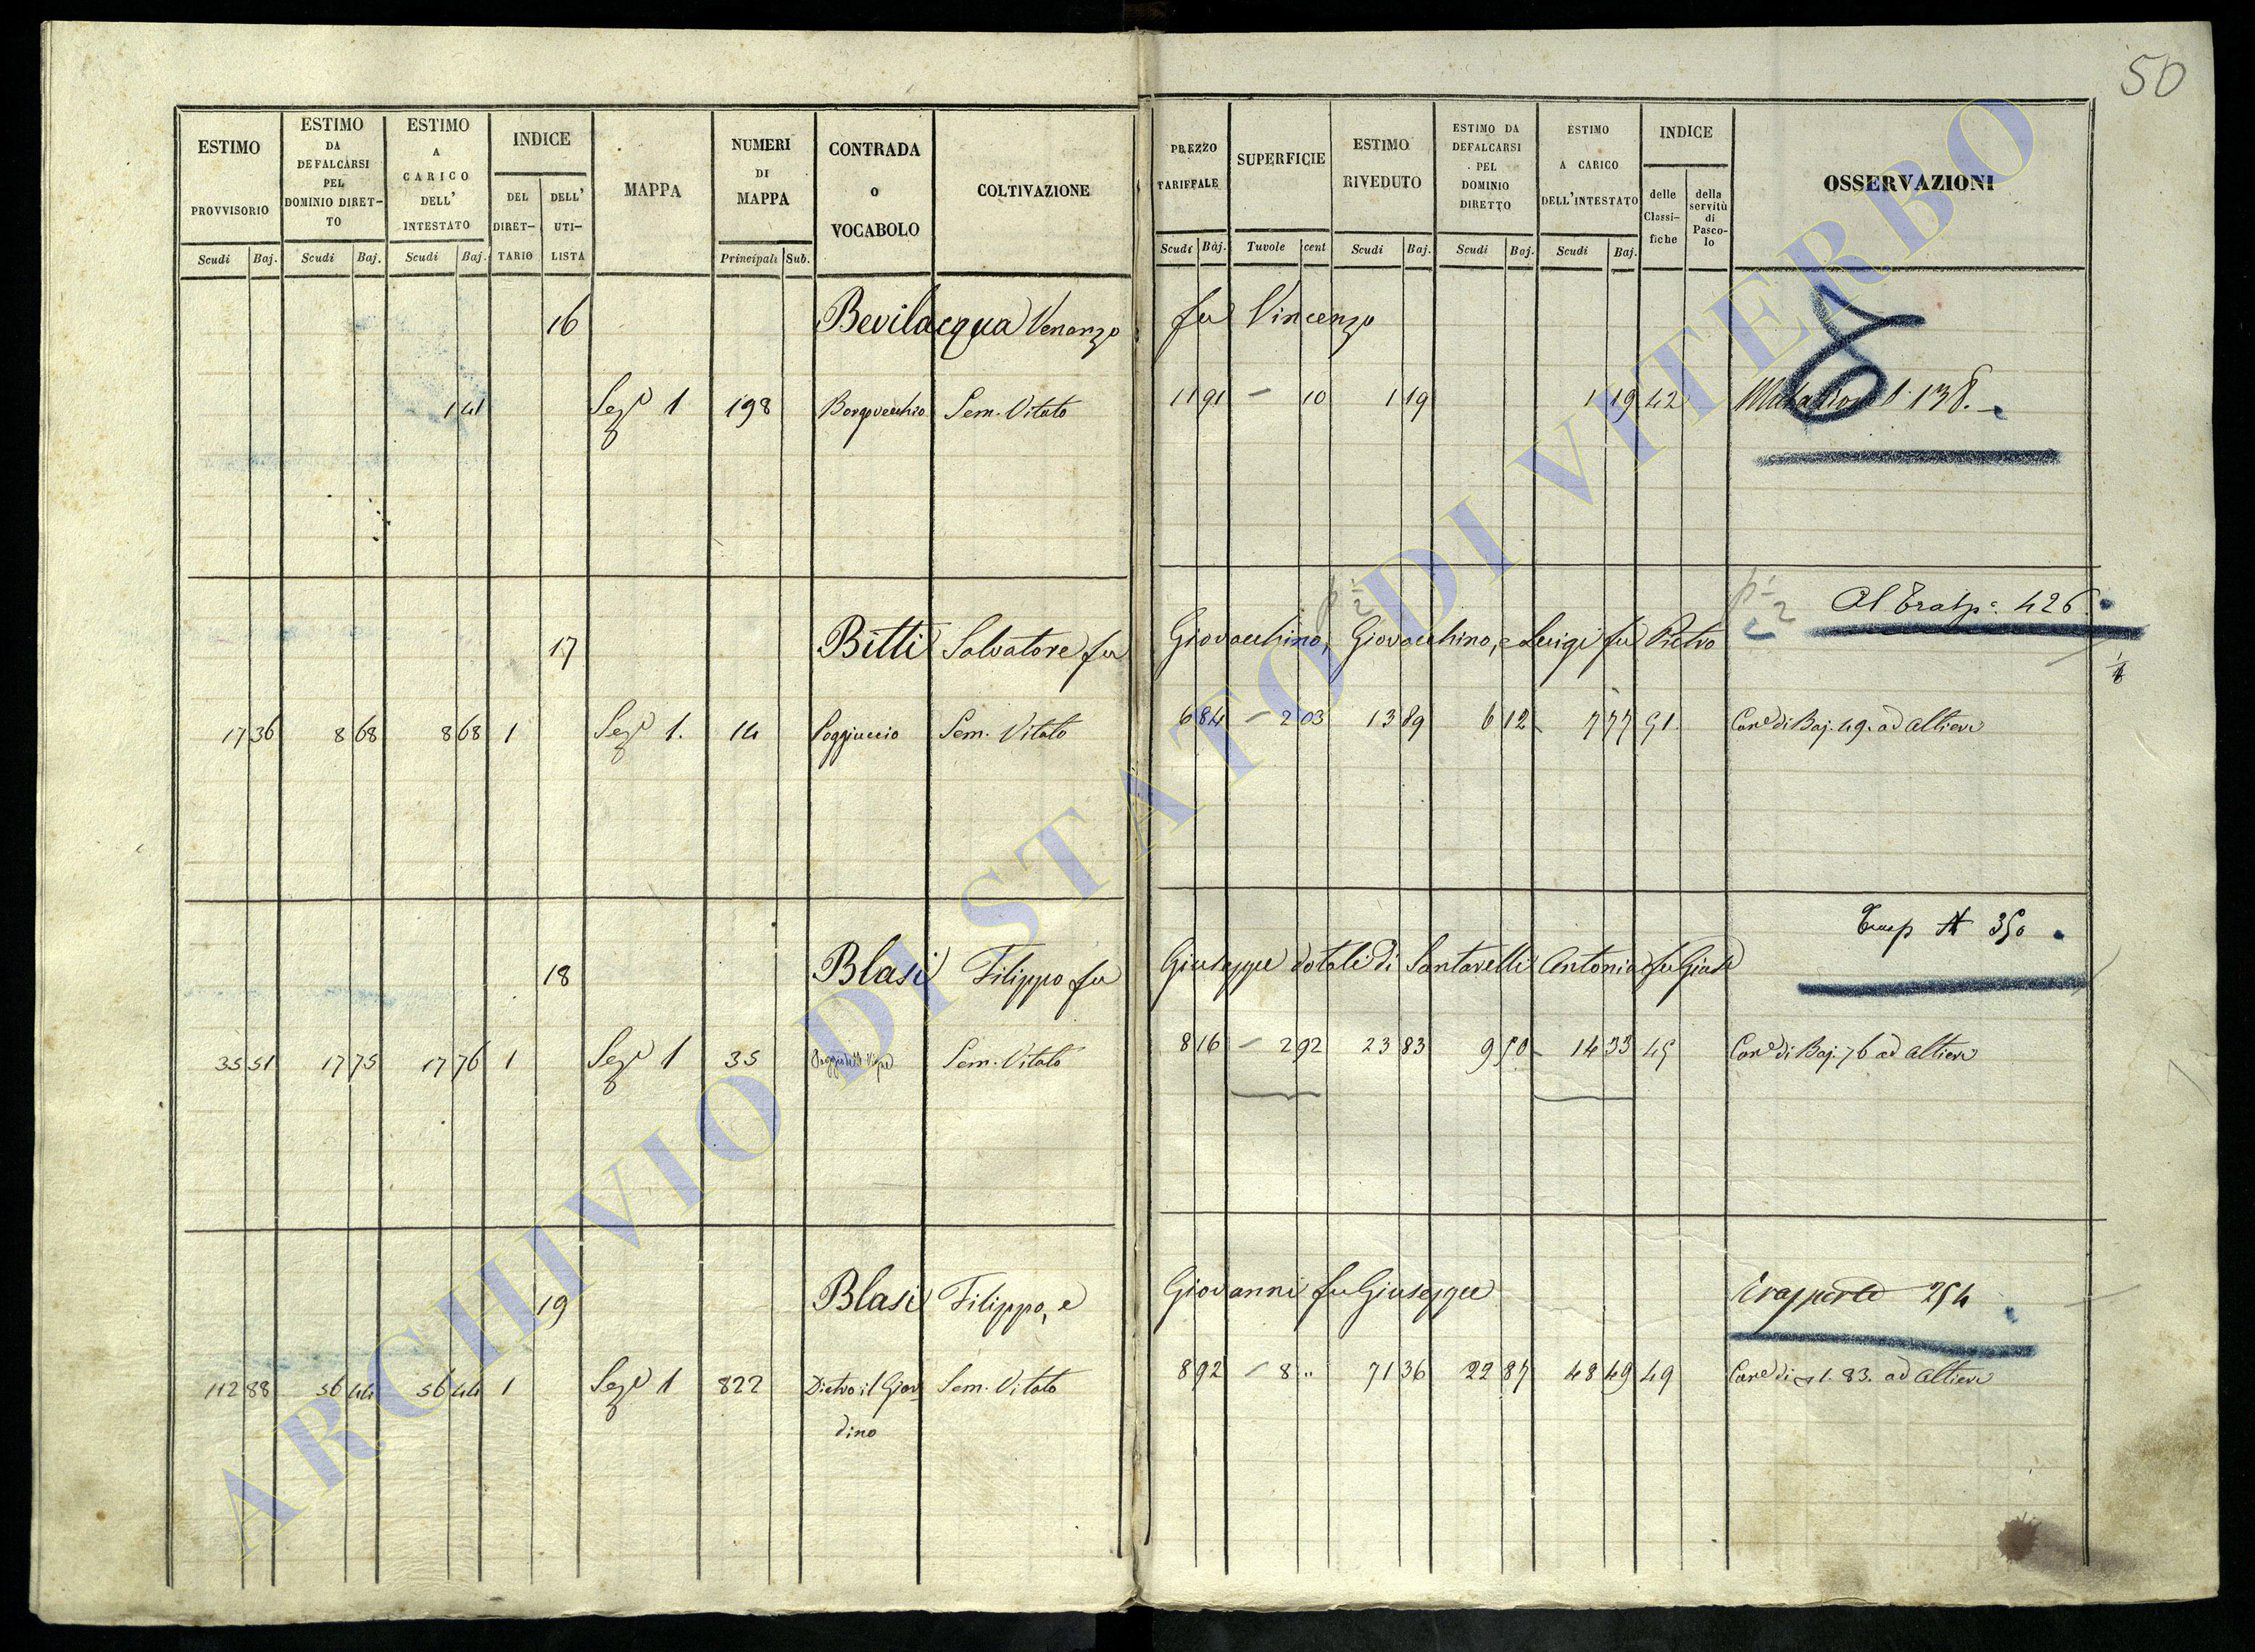 50
ESTIMO PROVVISORIO | ESTIMO DA DEFALCARSI PEL DOMINIO DIRET-TO | ESTIMO A CARICO DELL' INTESTATO | INDICE DEL DIRET-TARIO | DELL' UTI-LISTA | MAPPA | NUMERI DI MAPPA | CONTRADA o VOCABOLO | COLTIVAZIONE | PREZZO TARIFFALE | SUPERFICIE | ESTIMO RIVEDUTO | ESTIMO DA DEFALCARSI PEL DOMINIO DIRETTO | ESTIMO A CARICO DELL'INTESTATO | INDICE delle Classi-fiche | della servitù di Pasco-lo | OSSERVAZIONI
Scudi Baj. Scudi Baj. Scudi Baj. Principali Sub. Scudi Baj. Tavole cent Scudi Baj. Scudi Baj. Scudi Baj.
16 Bevilacqua Venanzo fu Vincenzo
1 41 Sez.e 1 198 Borgovecchio Sem. Vitato 11 91 — 10 1 19 1 19 42 138.
Al Trasp.o 426
17 Bitti Salvatore fu Giovacchino, Giovacchino, e Luigi fu Pietro
17 36 8 68 8 68 1 Sez.e 1. 14 Poggiuccio Sem. Vitato 6 84 — 2 03 13 89 6 12 7 77 51. Can.e di Baj. 49. ad Altieri
Trasp 350
18 Blasi Filippo fu Giuseppe dotali di Santarelli Antonia fu Gius.e
35 51 17 75 17 76 1 Sez.e 1 35 Sem. Vitato 8 16 — 2 92 23 83 9 50 14 33 45 Can.e di Baj. 76 ad Altieri
19 Blasi Filippo, e Giovanni fu Giuseppe Trasporto 254
112 88 56 44 56 44 1 Sez.e 1 822 Dietro il Giar- Sem. Vitato 8 92 — 8 " 71 36 22 87 48 49 49 Can.e di 1. 83. ad Altieri
dino
ARCHIVIO DI STATO DI VITERBO